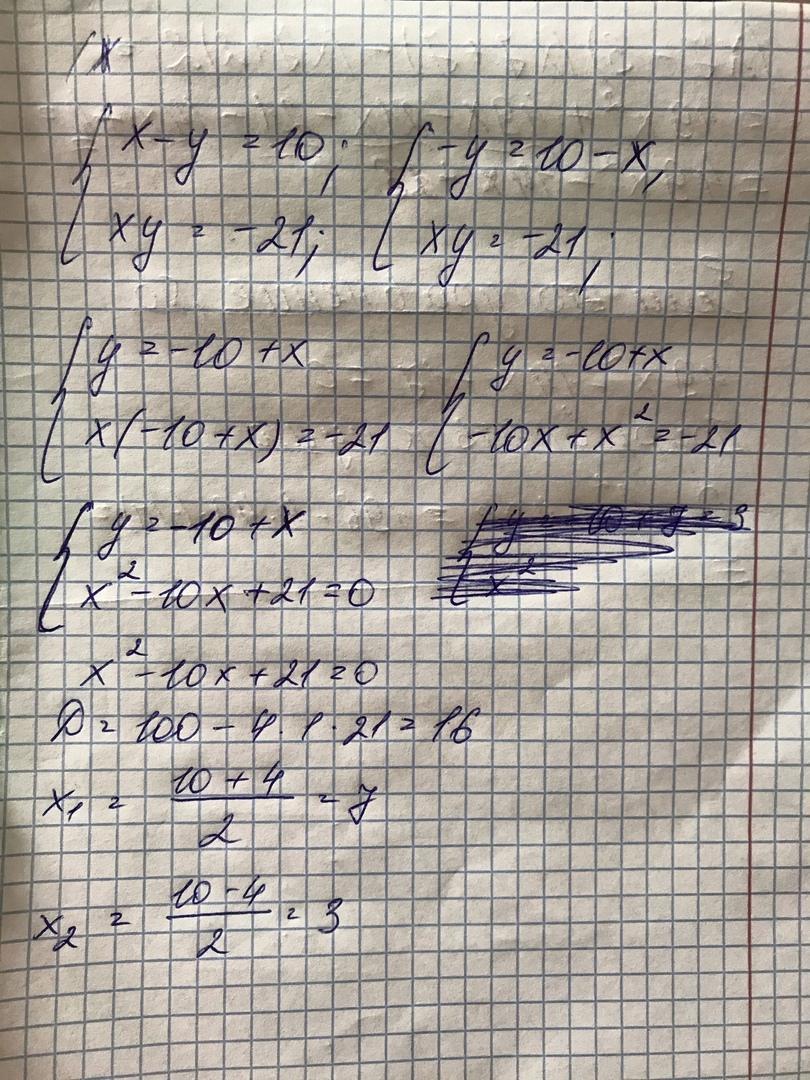 x - y = 10; -y = 10 - x,
xy = -21; xy = -21;
y = -10 + x y = -10 + x
x(-10 + x) = -21 -10x + x² = -21
y = -10 + x
x² - 10x + 21 = 0
x² - 10x + 21 = 0
D = 100 - 4 · 1 · 21 = 16
x₁ = (10 + 4)/2 = 7
x₂ = (10 - 4)/2 = 3